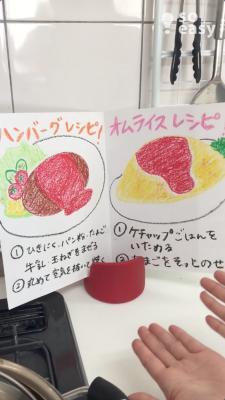 so
easy
ハンバーグレシピ!
①ひきにく、パン粉、たまご
牛乳、玉ねぎをまぜる
②丸めて空気を抜いて焼く
オムライスレシピ!
①ケチャップごはんを
いためる
②たまごをそっとのせ